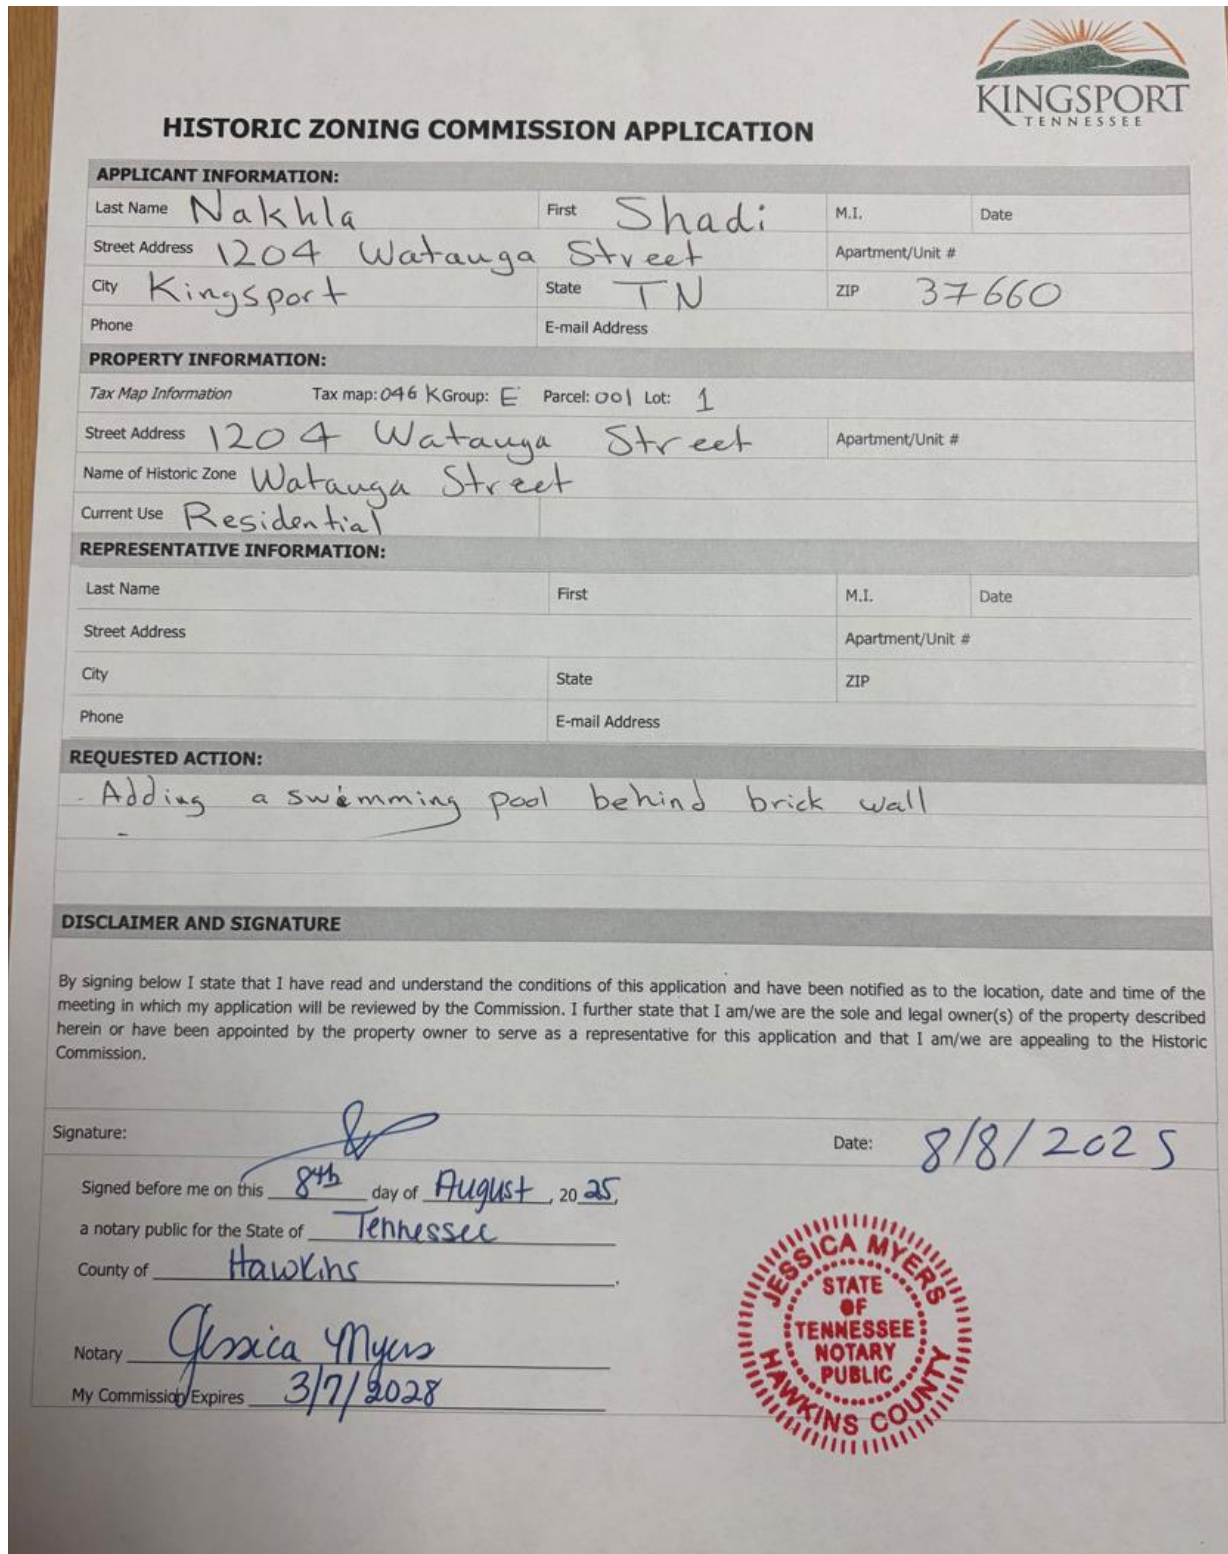 KINGSPORT
TENNESSEE
HISTORIC ZONING COMMISSION APPLICATION
APPLICANT INFORMATION:
Last Name Nakhla First Shadi M.I. Date
Street Address 1204 Watauga Street Apartment/Unit #
City Kingsport State TN ZIP 37660
Phone E-mail Address
PROPERTY INFORMATION:
Tax Map Information Tax map: 046 K Group: E Parcel: 001 Lot: 1
Street Address 1204 Watauga Street Apartment/Unit #
Name of Historic Zone Watauga Street
Current Use Residential
REPRESENTATIVE INFORMATION:
Last Name First M.I. Date
Street Address Apartment/Unit #
City State ZIP
Phone E-mail Address
REQUESTED ACTION:
- Adding a swimming pool behind brick wall
-
DISCLAIMER AND SIGNATURE
By signing below I state that I have read and understand the conditions of this application and have been notified as to the location, date and time of the
meeting in which my application will be reviewed by the Commission. I further state that I am/we are the sole and legal owner(s) of the property described
herein or have been appointed by the property owner to serve as a representative for this application and that I am/we are appealing to the Historic
Commission.
Signature: Date: 8/8/2025
Signed before me on this 8th day of August, 2025,
a notary public for the State of Tennessee
County of Hawkins.
Notary Jessica Myers
My Commission Expires 3/7/2028
JESSICA MYERS
STATE
OF
TENNESSEE
NOTARY
PUBLIC
HAWKINS COUNTY